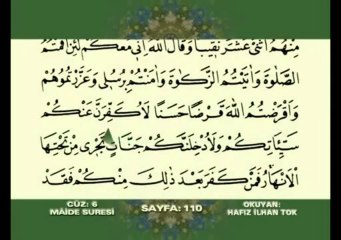 مِنْهُمُ اثْنَيْ عَشَرَ نَقِيبًا وَقَالَ اللّٰهُ اِنّ۪ي مَعَكُمْ لَئِنْ اَقَمْتُمُ
الصَّلٰوةَ وَاٰتَيْتُمُ الزَّكٰوةَ وَاٰمَنْتُمْ بِرُسُل۪ي وَعَزَّرْتُمُوهُمْ
وَاَقْرَضْتُمُ اللّٰهَ قَرْضًا حَسَنًا لَاُكَفِّرَنَّ عَنْكُمْ
سَيِّـَٔاتِكُمْ وَلَاُدْخِلَنَّكُمْ جَنَّاتٍ تَجْر۪ي مِنْ تَحْتِهَا
الْاَنْهَارُ فَمَنْ كَفَرَ بَعْدَ ذٰلِكَ مِنْكُمْ فَقَدْ
CÜZ: 6 SAYFA: 110 OKUYAN:
MÂİDE SURESİ HAFIZ İLHAN TOK